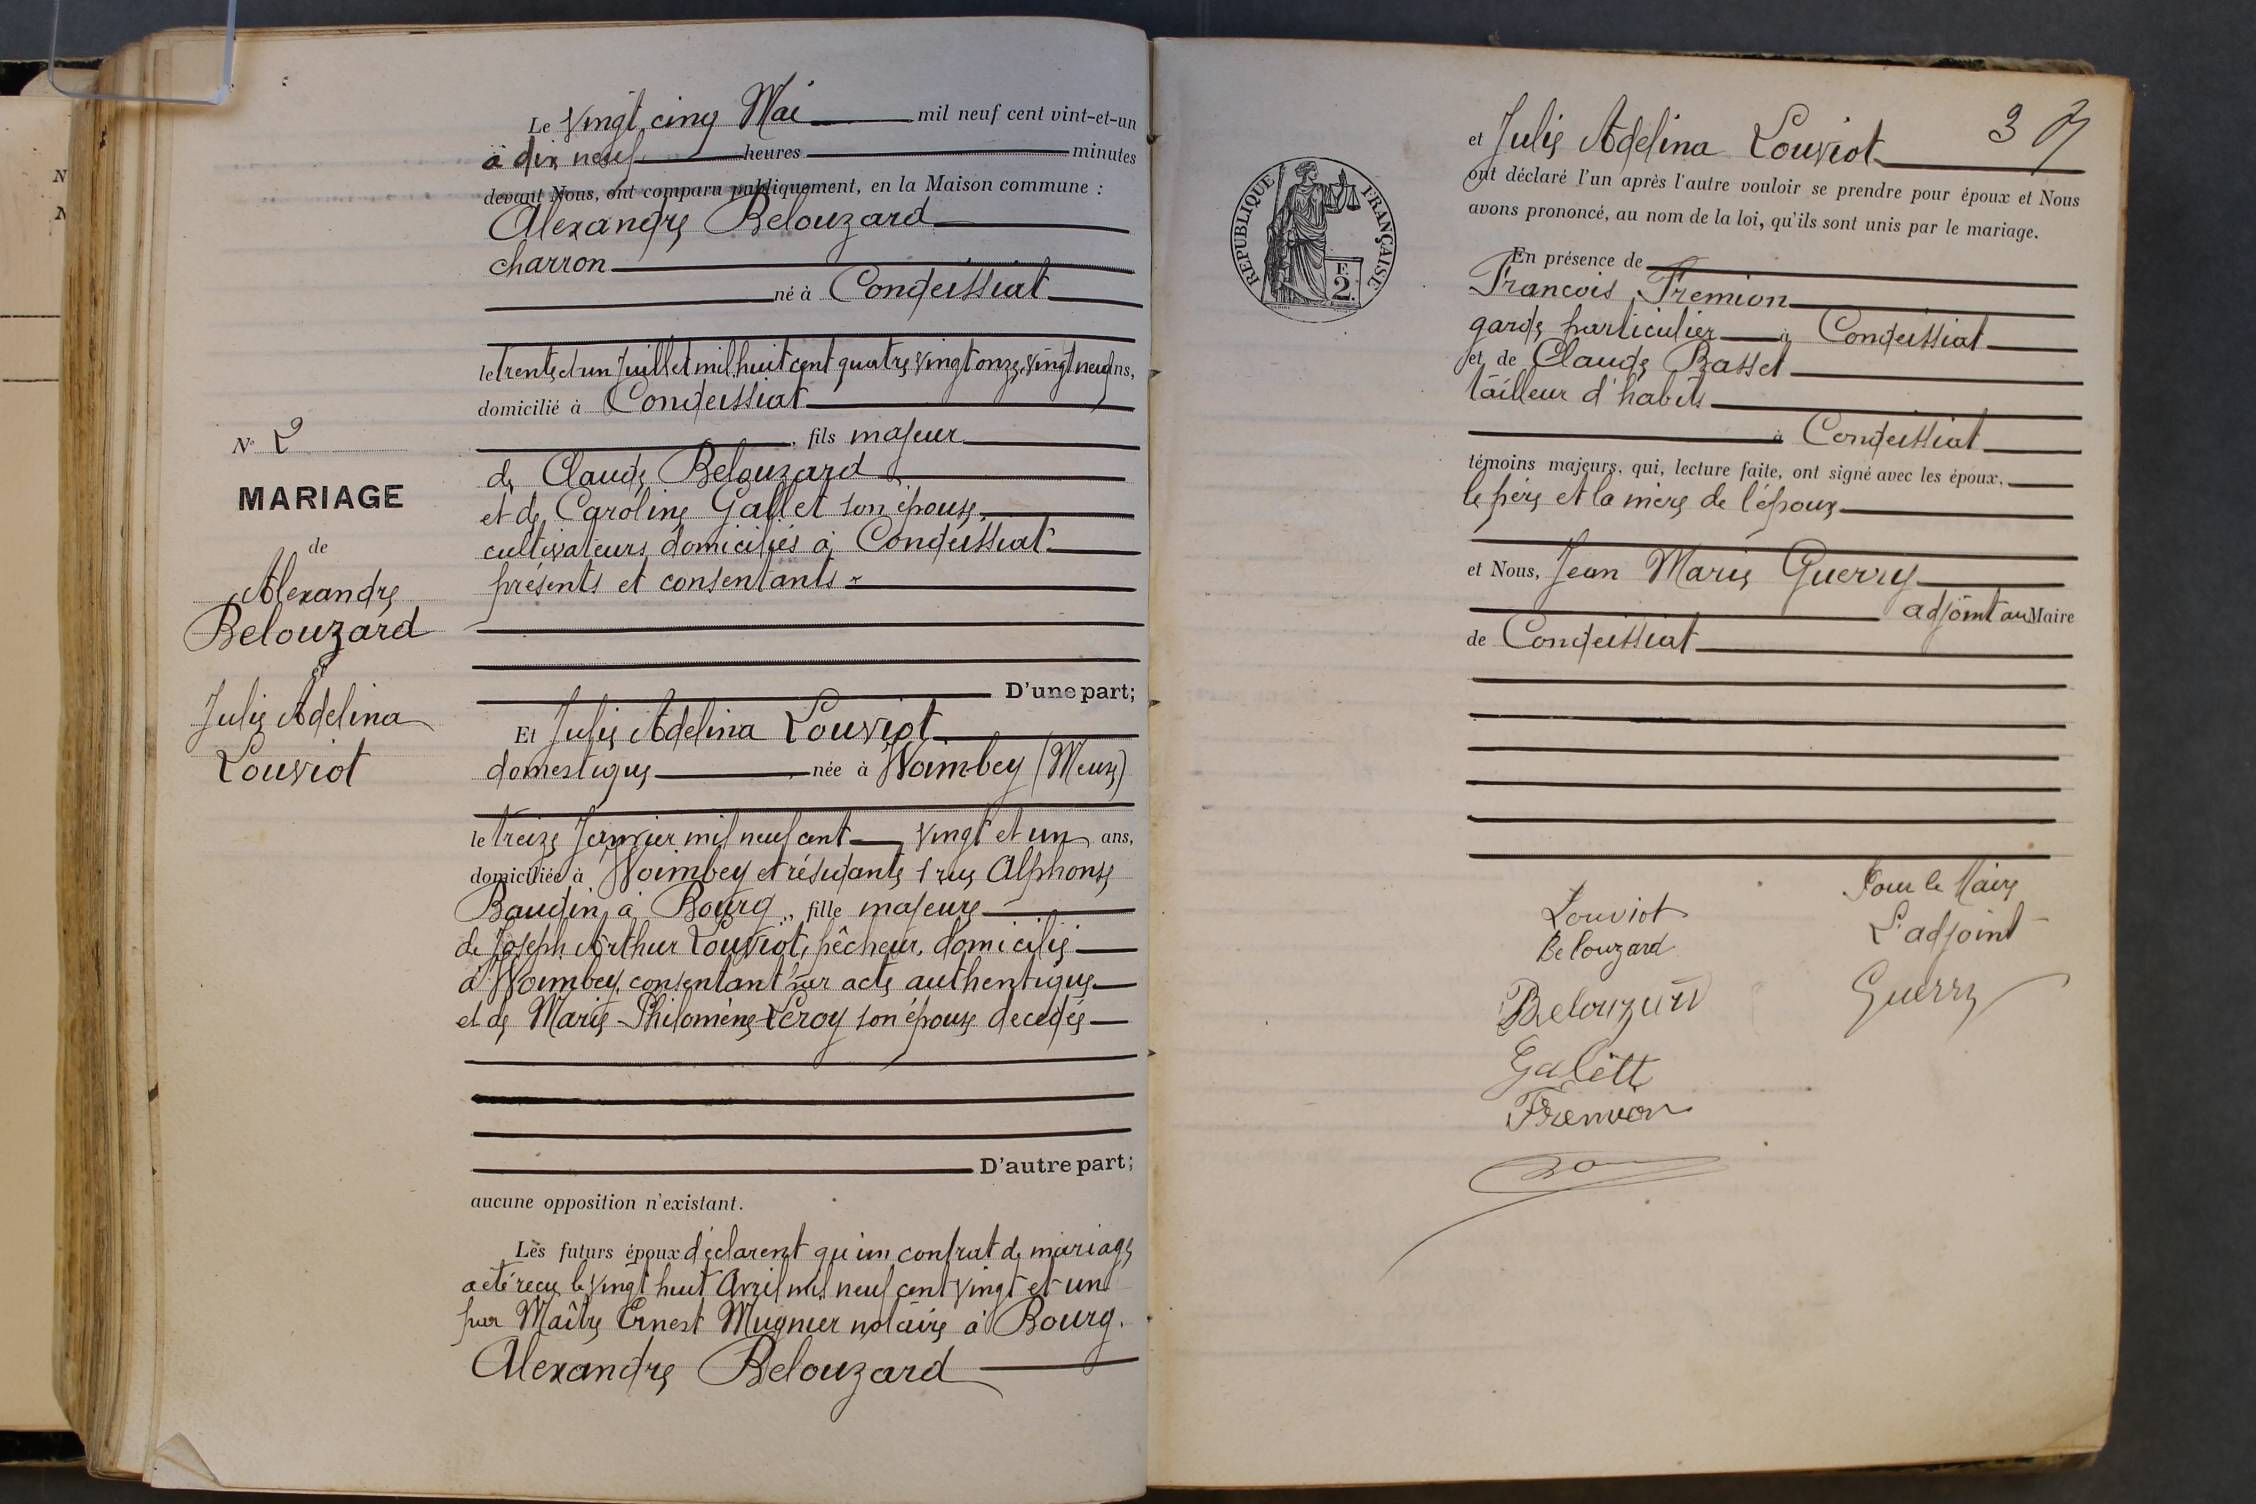 Le Vingt cinq Mai mil neuf cent vint-et-un
à dix neuf heures minutes
devant Nous, ont comparu publiquement, en la Maison commune :
Alexandre Belouzard
charron
né à Condeissiat
le trente et un Juillet mil huit cent quatre vingt onze, vingt neuf ans,
domicilié à Condeissiat
, fils majeur
de Claude Belouzard
et de Caroline Gallet son épouse,
cultivateurs domiciliés à Condeissiat
présents et consentants
D'une part;
Et Julie Adelina Louviot
domestique née à Woimbey (Meuse)
le treize Janvier mil neuf cent vingt et un ans,
domiciliée à Woimbey et résidante 1 rue Alphonse
Baudin à Bourg, fille majeure
de Joseph Arthur Louviot, pêcheur, domicilié
à Woimbey, consentant par acte authentique
et de Marie-Philomène Leroy son épouse decedée
D'autre part;
aucune opposition n'existant.
Les futurs époux déclarent qu'un contrat de mariage
a été reçu le vingt huit Avril mil neuf cent vingt et un
par Maître Ernest Mugnier notaire à Bourg.
Alexandre Belouzard
N° 2
MARIAGE
de
Alexandre
Belouzard
et
Julie Adelina
Louviot
3
et Julie Adelina Louviot
ont déclaré l'un après l'autre vouloir se prendre pour époux et Nous
avons prononcé, au nom de la loi, qu'ils sont unis par le mariage.
En présence de
François Fremion
garde particulier à Condeissiat
et de Claude Basset
tailleur d'habits
à Condeissiat
témoins majeurs, qui, lecture faite, ont signé avec les époux,
le père et la mère de l'époux
et Nous, Jean Marie Guerry
adjoint au Maire
de Condeissiat
RÉPUBLIQUE FRANÇAISE
F.
2.
Louviot
Belouzard
Belouzard
Galett
Fremion
Pour le Maire
L'adjoint
Guerry